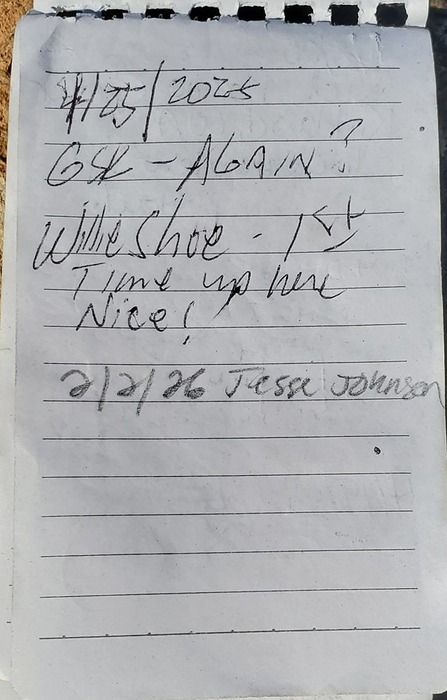 4/25/2025
GSK - AGAIN?
Willie Shoe - 1st
Time up here
Nice!
2/2/26 Jesse Johnson